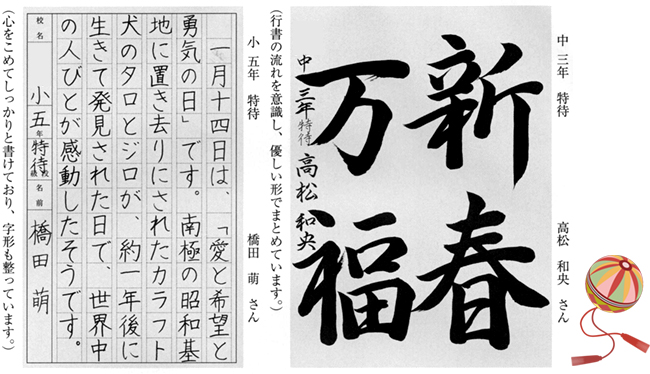 中三年　特待　高松　和央　さん
新春
万福
中三年特待　高松和央
（行書の流れを意識し、優しい形でまとめています。）
小五年　特待　橋田　萌　さん
一月十四日は、「愛と希望と
勇気の日」です。南極の昭和基
地に置き去りにされたカラフト
犬のタロとジロが、約一年後に
生きて発見された日で、世界中
の人びとが感動したそうです。
校名　小五年特待級　名前　橋田萌
（心をこめてしっかりと書けており、字形も整っています。）